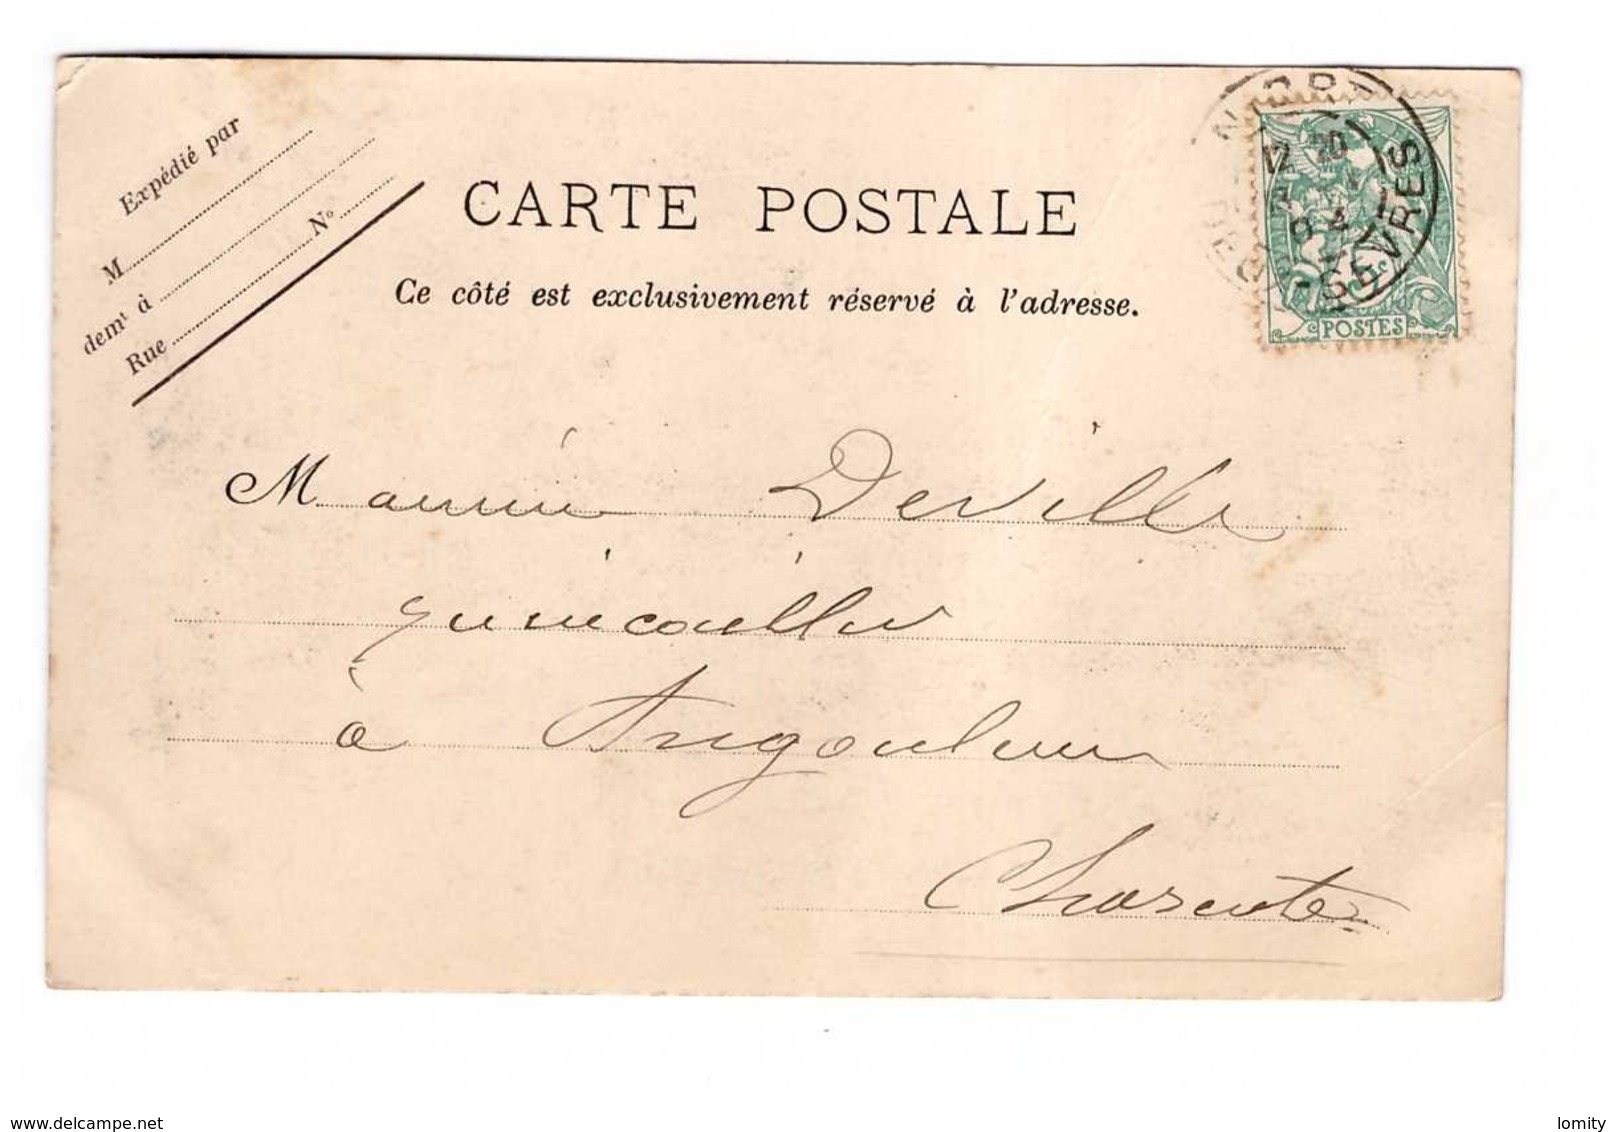 Expédié par
M
demt à
Rue N°
CARTE POSTALE
Ce côté est exclusivement réservé à l'adresse.
NIORT
12 20
04
DEUX SEVRES
5c
POSTES
M Deville
quincaillier
à Angoulême
Charente
www.delcampe.net
lomity